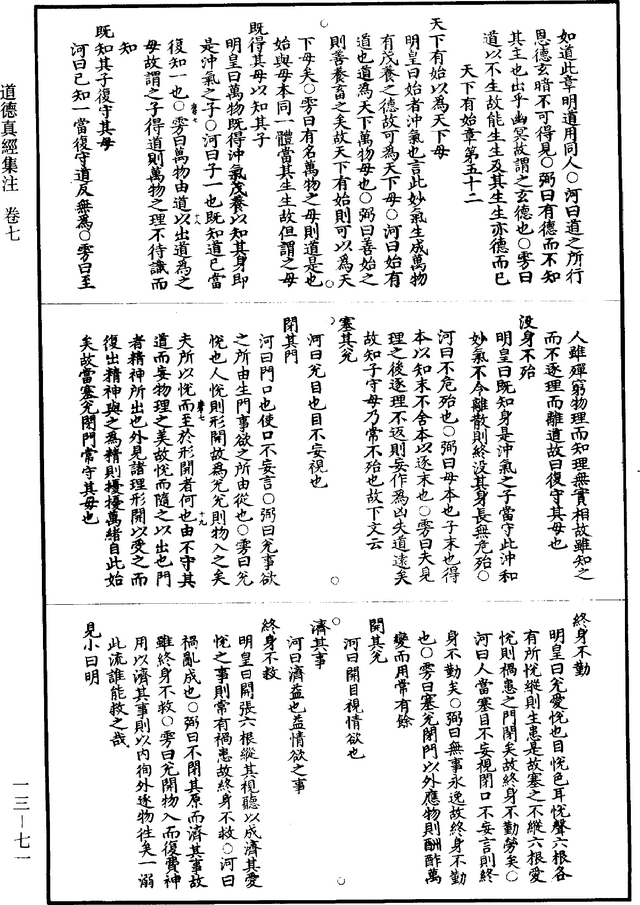 如道此章明道用同人○河曰道之所行
恩德玄暗不可得見○弼曰有德而不知
其主也出乎幽冥故謂之玄德也○雱曰
道以不生故能生生及其生生亦德而已
天下有始章第五十二
天下有始以為天下母
明皇曰始者沖氣也言此妙氣生成萬物
有茂養之德故可為天下母○河曰始有
道也道為天下萬物母也○弼曰善始之
則善養畜之矣故天下有始則可以為天
下母矣○雱曰有名萬物之母則道是也
始與母本同一體當其生生故但謂之母
既得其母以知其子
明皇曰萬物既得沖氣茂養以知其身即
是沖氣之子○河曰子一也既知道已當
復知一也○雱曰萬物由道以出道為之
母故謂之子得道則萬物之理不待識而
知
既知其子復守其母
河曰已知一當復守道反無為○雱曰至
人雖殫窮物理而知理無實相故雖知之
而不逐理而離道故曰復守其母也
沒身不殆
明皇曰既知身是沖氣之子當守此沖和
妙氣不令離散則終沒其身長無危殆○
河曰不危殆也○弼曰母本也子末也得
本以知末不舍本以逐末也○雱曰夫見
理之後逐理不返則妄作為凶失道遠矣
故知子守母乃常不殆也故下文云
塞其兌
河曰兌目也目不妄視也
閉其門
河曰門口也使口不妄言○弼曰兌事欲
之所由生門事欲之所由從也○雱曰兌
悅也人悅則形開故為兌兌則物入之矣
夫所以悅而至於形開者何也由不守其
道而妄物理之美故悅而隨之以出也門
者精神所出也外見諸理形開以受之而
復出精神與之為精則擾擾萬緒自此始
矣故當塞兌閉門常守其母也
終身不勤
明皇曰兌愛悅也目悅色耳悅聲六根各
有所悅縱則生患是故塞之不縱六根愛
悅則禍患之門閉矣故終身不勤勞矣○
河曰人當塞目不妄視閉口不妄言則終
身不勤矣○弼曰無事永逸故終身不勤
也○雱曰塞兌閉門以外應物則酬酢萬
變而用常有餘
開其兌
河曰開目視情欲也
濟其事
河曰濟益也益情欲之事
終身不救
明皇曰開張六根縱其視聽以成濟其愛
悅之事則常有禍患故終身不救○河曰
禍亂成也○弼曰不閉其原而濟其事故
雖終身不救○雱曰兌開物入而復費神
用以濟其事則以內徇外逐物往矣一溺
此流誰能救之哉
見小曰明
道德真經集注 卷七
一三－七一